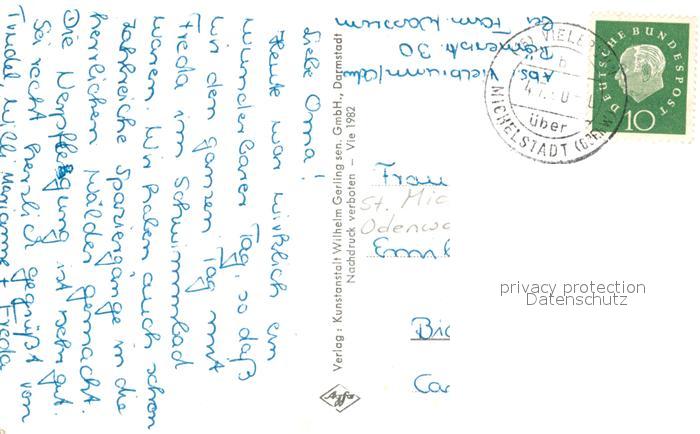 Liebe Oma!
Heute war wirklich ein
wunderbarer Tag, so daß
wir den ganzen Tag mit
Freda im Schwimmbad
waren. Wir haben auch schon
zahlreiche Spaziergänge in die
herrlichen Wälder gemacht.
Die Verpflegung ist sehr gut.
Sei recht herzlich gegrüßt von
Trudel, Willi, Marianne + Freda
Verlag: Kunstanstalt Wilhelm Gerling sen. GmbH., Darmstadt
Nachdruck verboten — Vie 1982
Agfa
Abs. Vielbrunn/Odw
Römerstr. 30
bei Fam.
VIELBRUNN
über
MICHELSTADT (ODENW)
DEUTSCHE BUNDESPOST
10
Frau
St. Mic
Odenwa
Bic
Ca
privacy protection
Datenschutz